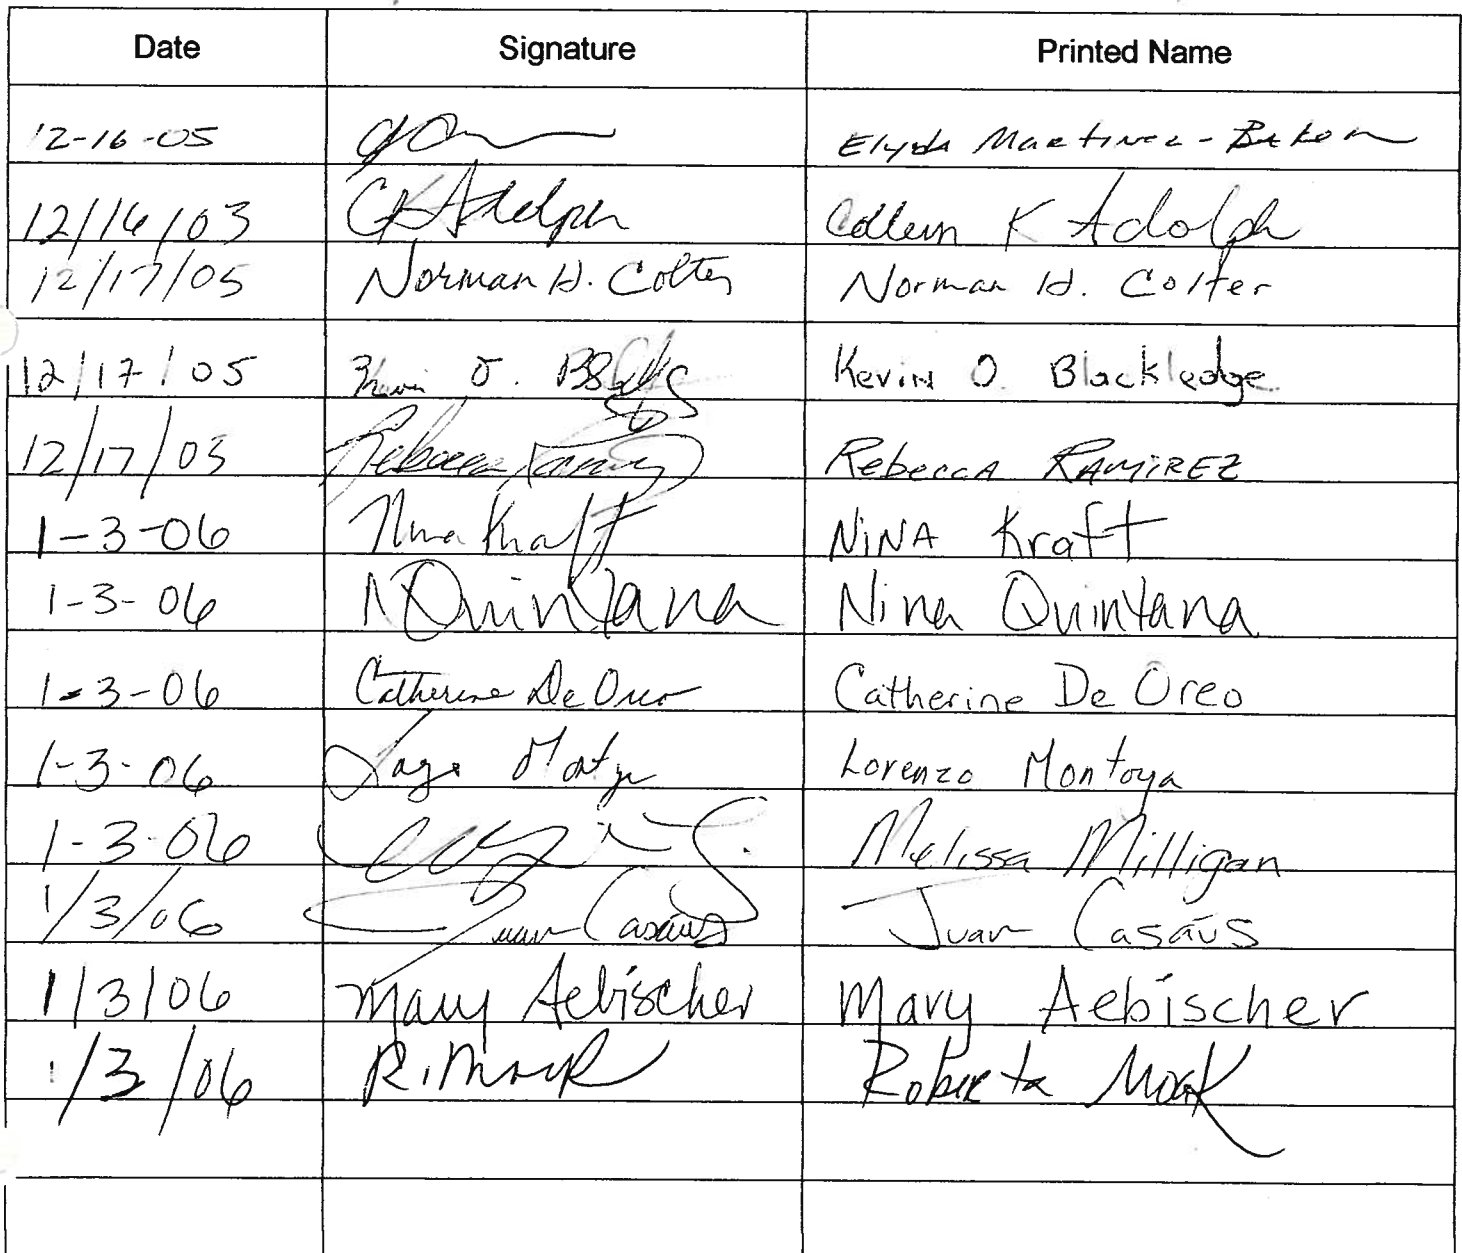 Date Signature Printed Name
12-16-05 Elyda Martinez-
12/16/05 CK Adolph Colleen K Adolph
12/17/05 Norman H. Colter Norman H. Colter
12/17/05 Kevin O. Kevin O Blackledge
12/17/05 Rebecca Ramirez Rebecca RAMIREZ
1-3-06 Nina Kraft NiNA Kraft
1-3-06 NQuintana Nina Quintana
1-3-06 Catherine De Oreo Catherine De Oreo
1-3-06 Lorenzo Montoya
1-3-06 Melissa Milligan
1/3/06 Juan Casáus Juan Casáus
1/3/06 Mary Aebischer Mary Aebischer
1/3/06 R. Mock Roberta Mock